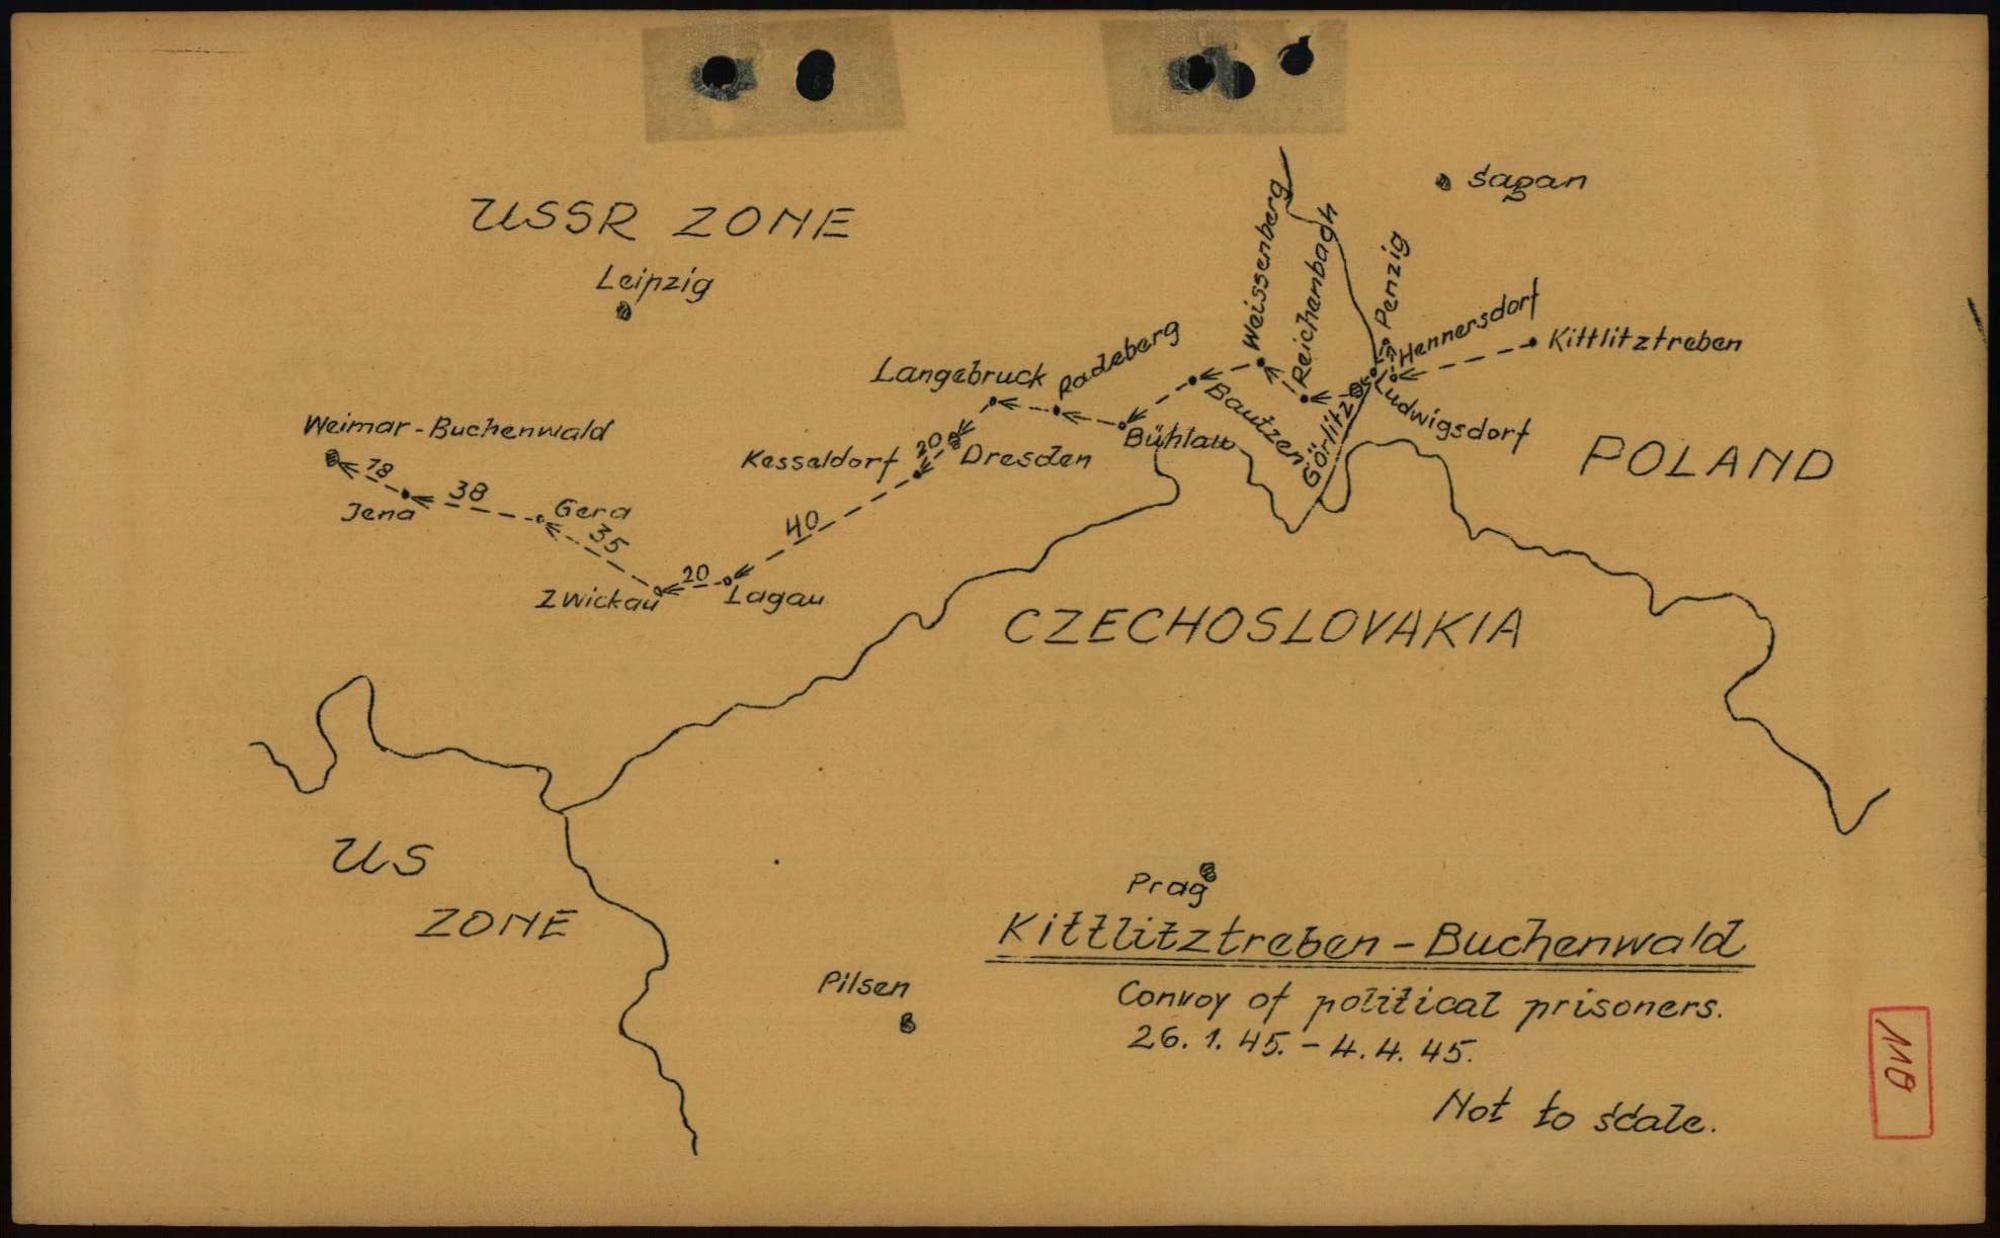 Sagan
USSR ZONE
Leipzig
Weissenberg
Reichenbach
Penzig
Hennersdorf
Kittlitztreben
Langebruck
Radeberg
Bautzen
Görlitz
Ludwigsdorf
Bühlau
POLAND
Weimar-Buchenwald
18
38
Jena
Gera
35
Kesseldorf
20
Dresden
40
Zwickau
20
Lagau
CZECHOSLOVAKIA
US
ZONE
Prag
Pilsen
Kittlitztreben - Buchenwald
Convoy of political prisoners.
26.1.45. - 4.4.45.
Not to scale.